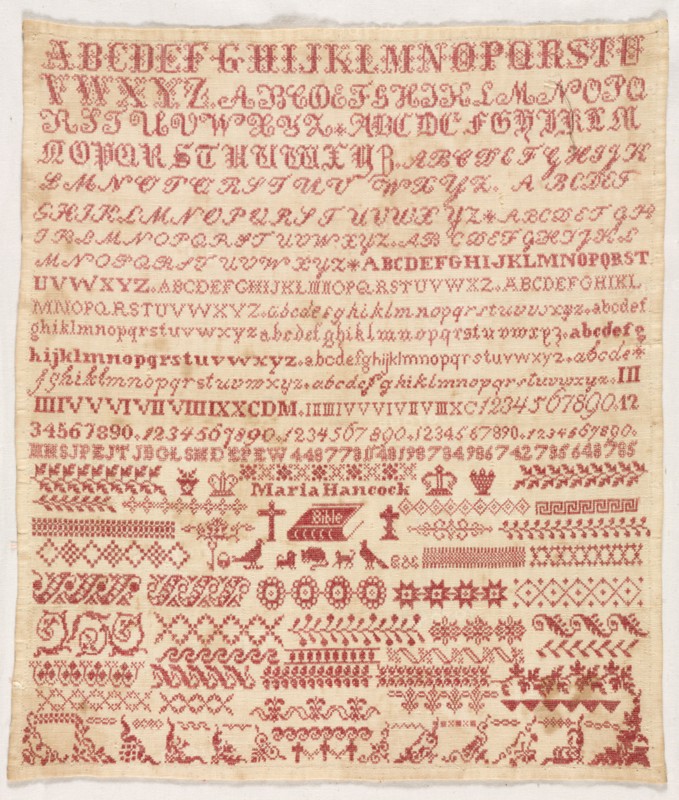 ABCDEFGHIJKLMNOPQRSTU
VWXYZ.ABCDEFGHIJKLMNOPQ
RSTUVWXYZ*ABCDEFGHIKLM
NOPQRSTUVWXYZ.ABCDEFGHIJK
LMNOPQRSTUVWXYZ.ABCDEF
GHIJKLMNOPQRSTUVWXYZ*ABCDEFGH
IKLMNOPQRSTUVWXYZ.ABCDEFGHIJKL
MNOPQRSTUVWXYZ*ABCDEFGHIJKLMNOPQRST
UVWXYZ.ABCDEFGHIJKLMNOPQRSTUVWXZ.ABCDEFGHIKL
MNOPQRSTUVWXYZ.abcdefghiklmnopqrstuvwxyz.abcdef
ghiklmnopqrstuvwxyzabcdefghiklmnopqrstuvwxyz.abcdefg
hijklmnopqrstuvwxyz.abcdefghijklmnopqrstuvwxyz.abcde*
fghiklmnopqrstuvwxyz.abcdefghiklmnopqrstuvwxyz.III
IIIIVVVIVIIVIIIIXXCDM.IIIIIIVVVIVIIVIIIXC1234567890.12
34567890.1234567890.1234567890.1234567890.1234567890.
Maria Hancock
Bible